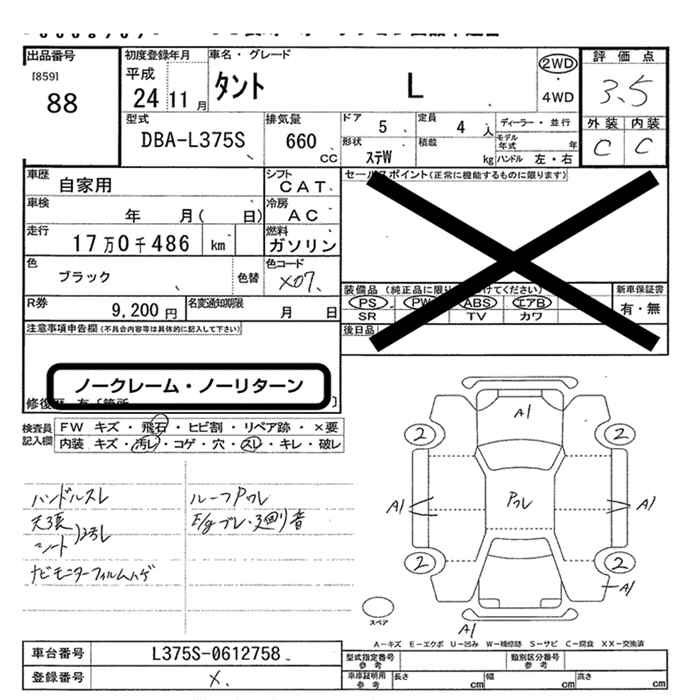 出品番号
[859]
88
初度登録年月
平成
24 11 月
車名・グレード
タント L
2WD
・
4WD
評価点
3.5
外装 内装
C C
型式
DBA-L375S
排気量
660 cc
ドア
5
定員
4 人
ディーラー・並行
形状
ステW
積載
kg
モデル年式 年
ハンドル 左・右
車歴
自家用
シフト
CAT
車検
年 月( 日)
冷房
AC
走行
17万0千486 km
燃料
ガソリン
色
ブラック
色替
色コード
X07
R券
9,200円
名変通知期限
月 日
セールスポイント(正常に機能するものに限ります)
装備品
PS PW ABS エアB
SR TV カワ
後日品
新車保証書
有・無
注意事項申告欄(不具合内容等は具体的に記入して下さい)
ノークレーム・ノーリターン
検査員記入欄
FW キズ・飛石・ヒビ割・リペア跡・×要
内装 キズ・汚レ・コゲ・穴・スレ・キレ・破レ
ハンドルスレ
天張
シート
汚レ
ナビモニターフィルムハゲ
ルーフPワレ
E/gブレ・3廻り音
A1
2 2
A1 Pワレ A1
2 2
A1
A1
スペア
A-キズ E-エクボ U-凹み W-補修跡 S-サビ C-腐食 XX-交換済
車台番号
L375S-0612758
登録番号
X
型式指定番号
参考
類別区分番号
参考
車庫証明用
参考
長さ cm
幅 cm
高さ cm